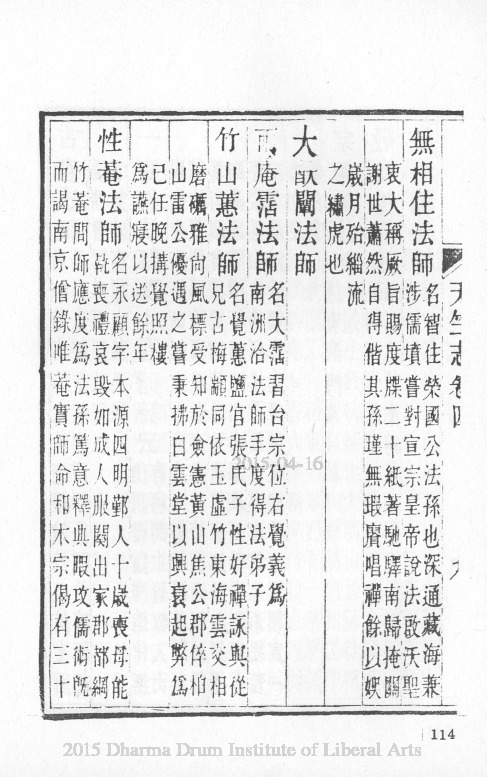 天竺志卷四 九
無相住法師 名智住榮國公法孫也深通藏海兼
涉儒墳嘗對宣宗皇帝說法啟沃聖
衷大稱厥旨賜度牒二十紙著馳驛南歸掩關
謝世蕭然自得偕其孫瑾無瑕賡唱禪餘以娛
歲月殆緇流
之繡虎也
大 闡法師
庵霑法師 名大霑習台宗位右覺義爲
南洲洽法師手度得法弟子
竹山蕙法師 名覺蕙鹽官張氏子性好禪詠與從
兄古梅顓同依玉虛竹東海雲交相
磨礪雅尚風標受知於僉憲黃山焦公郡倅柏
山雷公優遇之嘗秉拂白雲堂以興衰起弊爲
己任晚搆覺照樓
爲讌寢以送餘年
性菴法師 名永顧字本源四明鄞人十歲喪母能
執喪禮哀毀如成人服闋出家郡都綱
竹菴問師應度爲法孫篤意釋典暇攻儒術既
而謁南京僧錄唯菴實師命和木宗偈有三十
2015-04-16
114
2015 Dharma Drum Institute of Liberal Arts